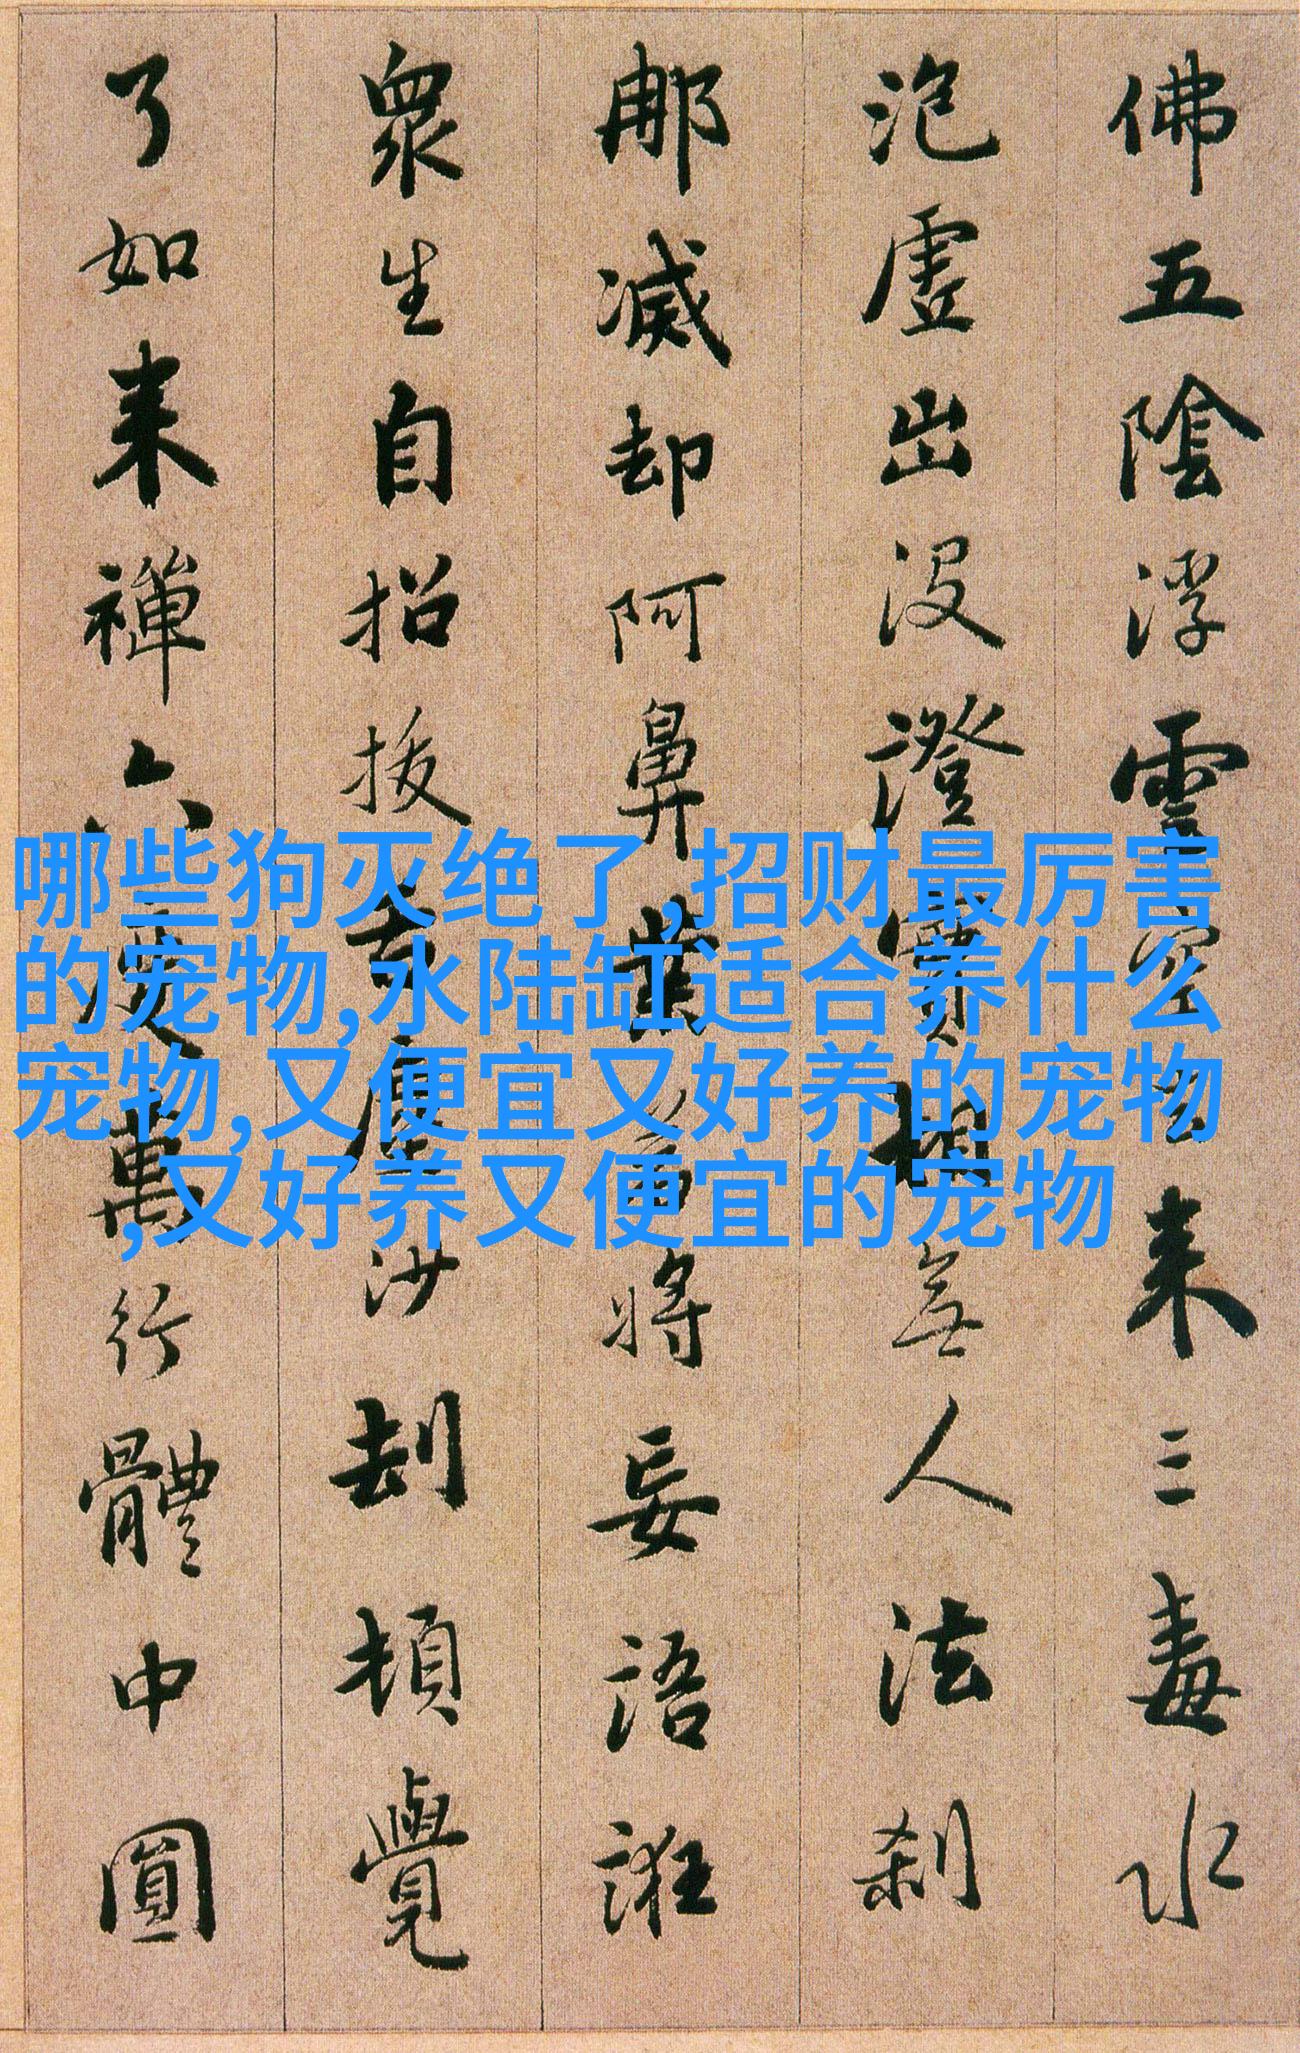 佛五陰浮雲空去来三毒水
泡虚出没澄實相無人法刹
那滅却阿鼻業若將妄語誑
衆生自招拔舌塵沙劫頓覺
了如来禪六度萬行體中圓
哪些狗灭绝了,招财最厉害
的宠物,水陆缸适合养什么
宠物,又便宜又好养的宠物
,又好养又便宜的宠物